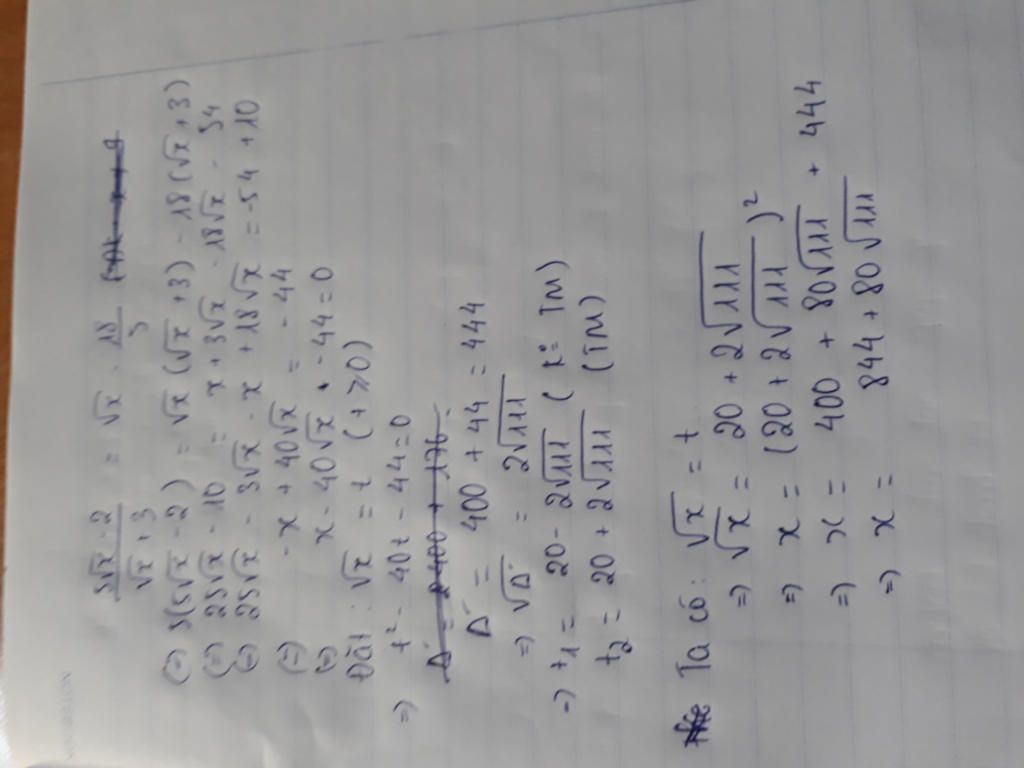 (5√x - 2)/(√x + 3) = √x - 18/5
(=) 5(5√x - 2) = √x (√x + 3) - 18(√x + 3)
(=) 25√x - 10 = x + 3√x - 18√x - 54
(=) 25√x - 3√x - x + 18√x = -54 + 10
(=) -x + 40√x = -44
(=) x - 40√x - 44 = 0
Đặt : √x = t (t ≥ 0)
=) t² - 40t - 44 = 0
Δ' = 400 + 44 = 444
=) √Δ' = 2√111
=) t₁ = 20 - 2√111 (k° TM)
t₂ = 20 + 2√111 (TM)
Ta có : √x = t
=) √x = 20 + 2√111
=) x = (20 + 2√111)²
=) x = 400 + 80√111 + 444
=) x = 844 + 80√111